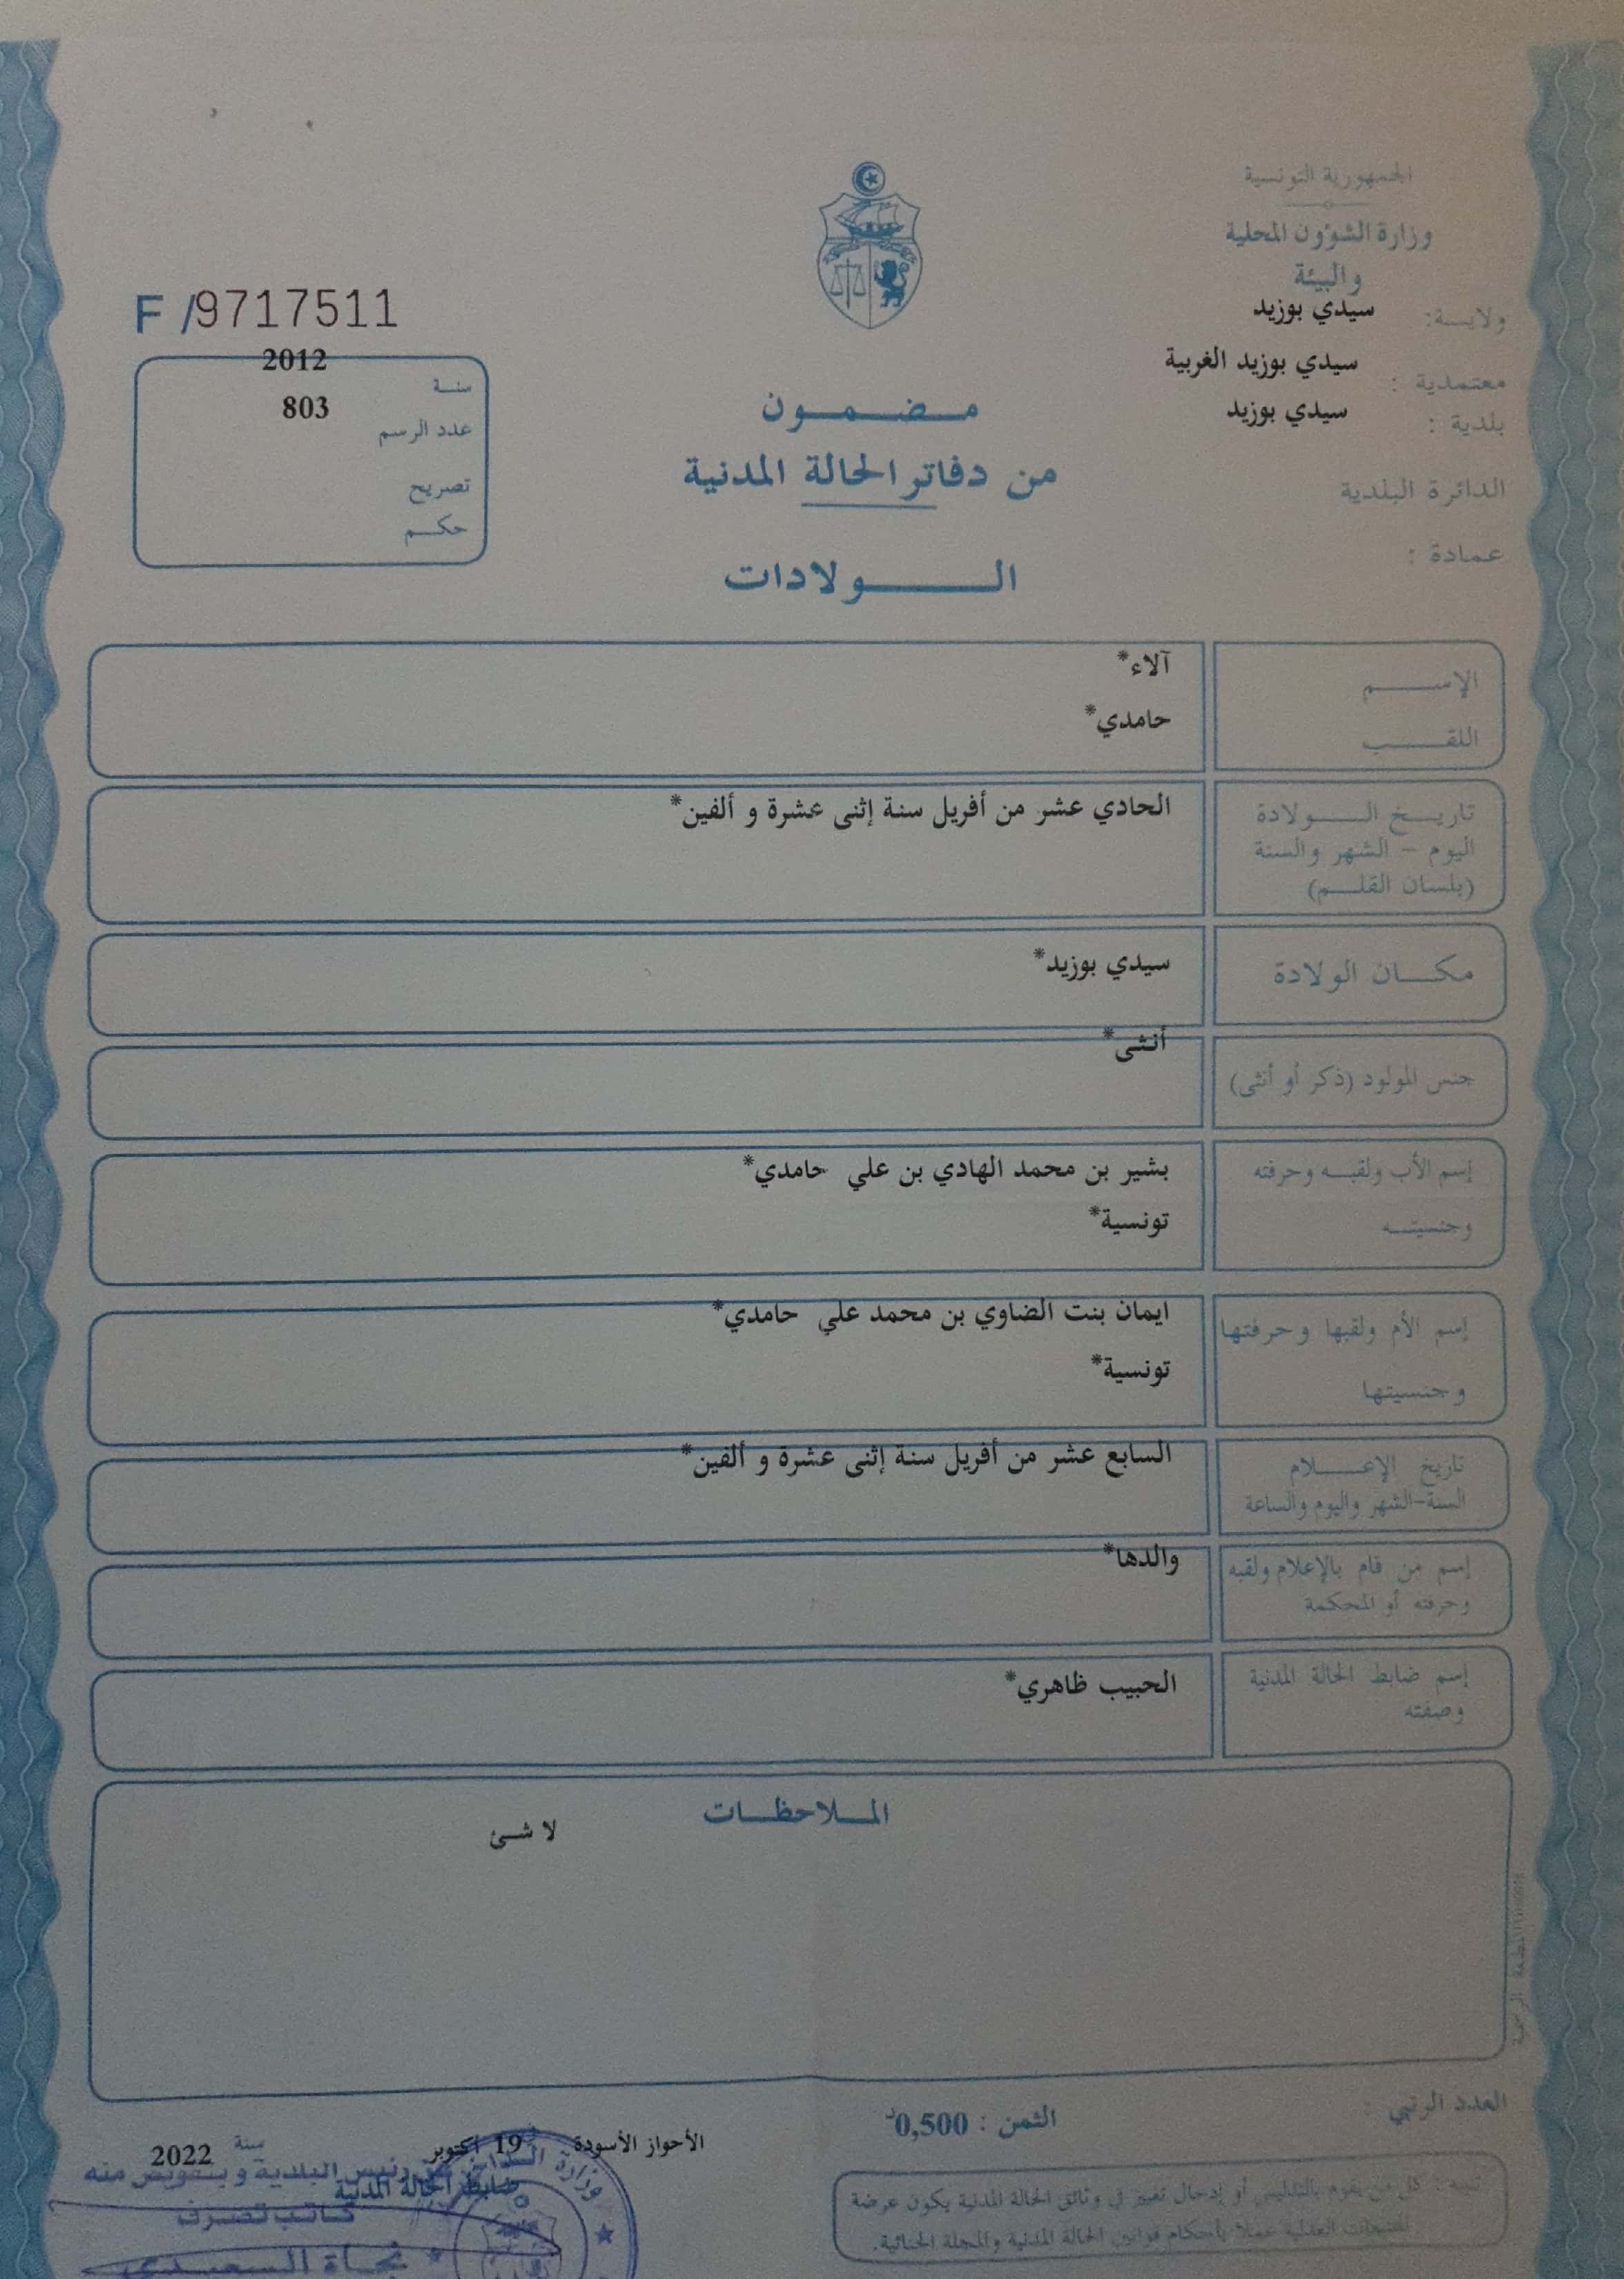 الجمهورية التونسية
وزارة الشؤون المحلية
والبيئة
ولايـــة: سيدي بوزيد
معتمدية : سيدي بوزيد الغربية
بلدية : سيدي بوزيد
الدائرة البلدية
عمادة :
F /9717511
سنة 2012
عدد الرسم 803
تصريح
حكم
مضمون
من دفاتر الحالة المدنية
الولادات
الإسم آلاء*
اللقب حامدي*
تاريخ الولادة
اليوم – الشهر والسنة
(بلسان القلم)
الحادي عشر من أفريل سنة إثنى عشرة و ألفين*
مكان الولادة سيدي بوزيد*
جنس المولود (ذكر أو أنثى) أنثى*
إسم الأب ولقبه وحرفته بشير بن محمد الهادي بن علي حامدي*
وجنسيته تونسية*
إسم الأم ولقبها وحرفتها ايمان بنت الضاوي بن محمد علي حامدي*
وجنسيتها تونسية*
تاريخ الإعلام
السنة-الشهر واليوم والساعة
السابع عشر من أفريل سنة إثنى عشرة و ألفين*
إسم من قام بالإعلام ولقبه
وحرفته أو المحكمة
والدها*
إسم ضابط الحالة المدنية
وصفته
الحبيب ظاهري*
الملاحظات
لا شئ
المطبعة الرسمية
العدد الرتبي :
الثمن : 0,500د
الأحواز الأسودة في 19 أكتوبر سنة 2022
ضابط الحالة المدنية
عن رئيس البلدية و بتفويض منه
كاتب تصرف
نجاة السعيدي
وزارة
تنبيه : كل من يقوم بالتدليس أو إدخال تغيير في وثائق الحالة المدنية يكون عرضة
للتتبعات العدلية عملا بأحكام قوانين الحالة المدنية والمجلة الجنائية.